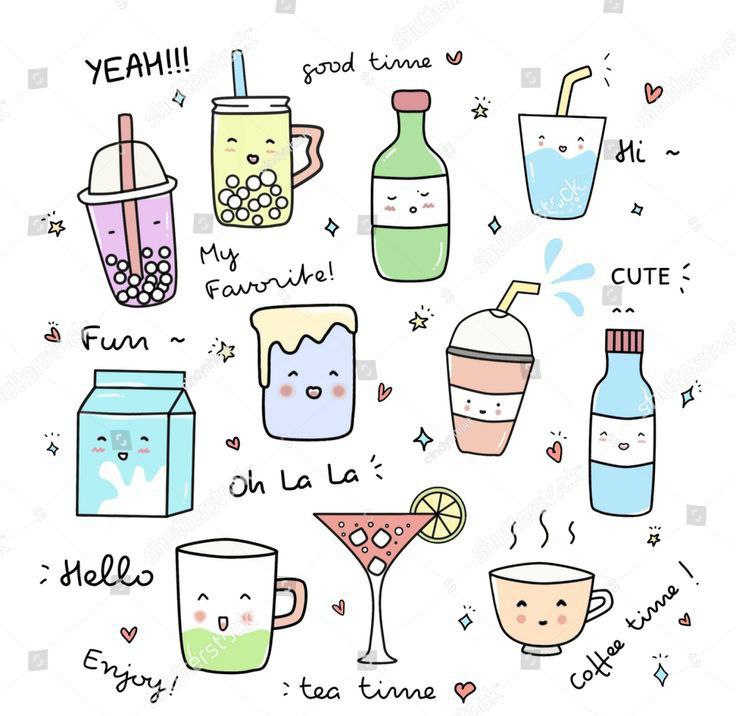 YEAH!!!
good time
Hi ~
My
Favorite!
CUTE
Fun ~
Oh La La
Hello
Enjoy!
tea time
coffee time!
shutterstock